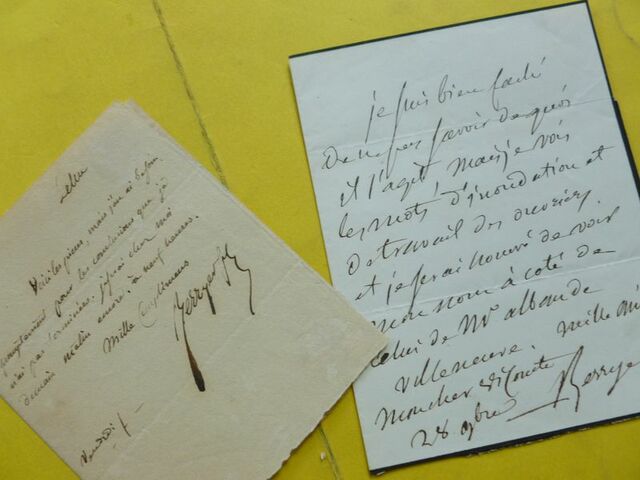 Voici les pièces, mais j'en ai besoin
promptement pour les conclusions que je
n'ai pas terminées. Je serai chez moi
demain matin encore à neuf heures.
Mille Compliments
Berryer
Vendredi
je suis bien faché
de ne pas savoir de quoi
il s'agit. mais je vois
les mots d'inondation et
de travail des ouvriers
et je serai honoré de voir
mon nom à coté de
celui de Mr alban de
villeneuve. mille
mon cher Vicomte
28 9bre Berryer